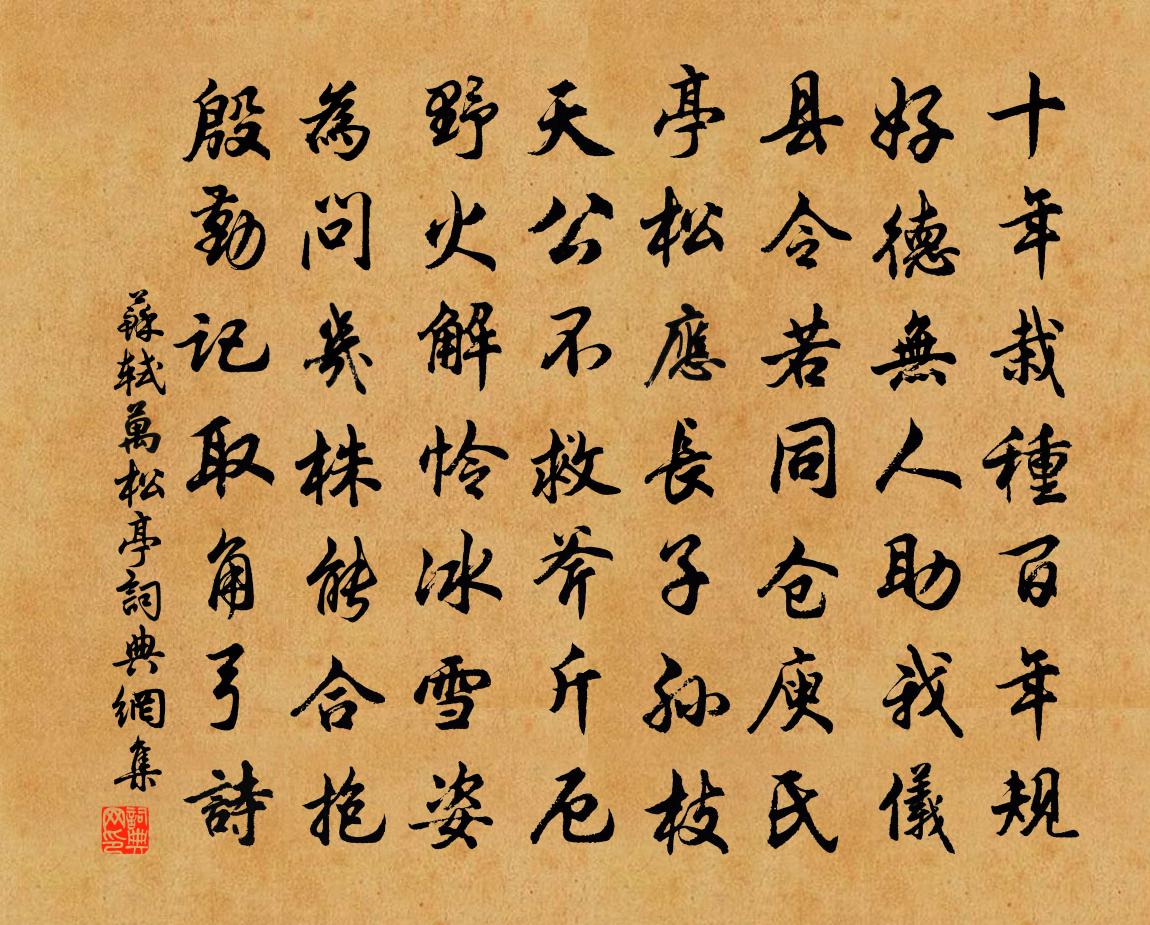 十年栽種百年規
好德無人助我儀
县令若同仓庾氏
亭松應長子孙枝
天公不救斧斤厄
野火解怜冰雪姿
為問幾株能合抱
殷勤記取角弓詩
蘇軾萬松亭詞典網集
詞典網印